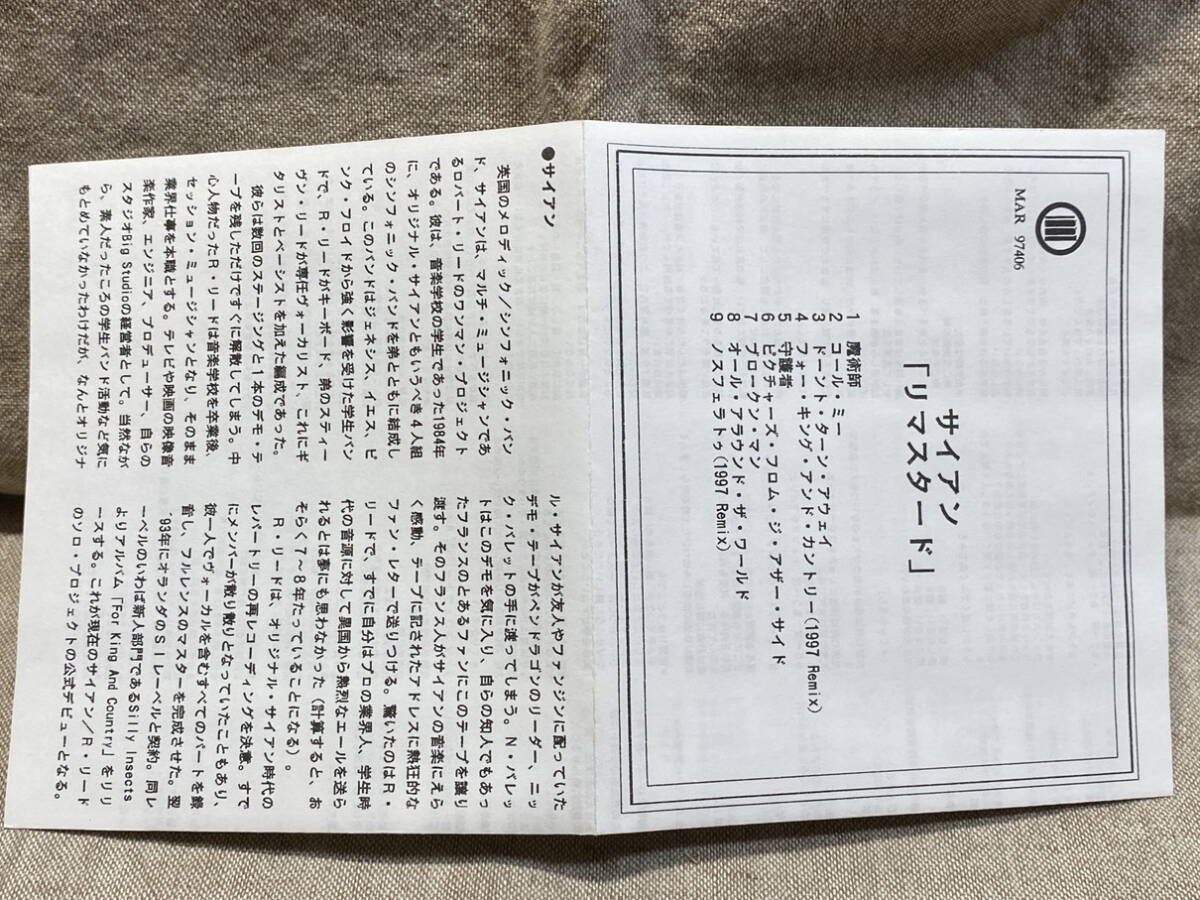 MAR 97406
サイアン
「リマスタード」
1 魔術師
2 コール・ミー
3 ドーント・ターン・アウェイ
4 フォー・キング・アンド・カントリー(1997 Remix)
5 守護者
6 ピクチャーズ・フロム・ジ・アザー・サイド
7 ブロークン・マン
8 オール・アラウンド・ザ・ワールド
9 ノスフェラトゥ(1997 Remix)
●サイアン
英国のメロディック/シンフォニック・バン
ド、サイアンは、マルチ・ミュージシャンであ
るロバート・リードのワンマン・プロジェクト
である。彼は、音楽学校の学生であった1984年
に、オリジナル・サイアンともいうべき4人組
のシンフォニック・バンドを弟とともに結成し
ている。このバンドはジェネシス、イエス、ピ
ンク・フロイドから強く影響を受けた学生バン
ドで、R・リードがキーボード、弟のスティー
ヴン・リードが専任ヴォーカリスト、これにギ
タリストとベーシストを加えた編成であった。
彼らは数回のステージングと1本のデモ・テ
ープを残しただけですぐに解散してしまう。中
心人物だったR・リードは音楽学校を卒業後、
セッション・ミュージシャンとなり、そのまま
業界仕事を本職とする。テレビや映画の映像音
楽作家、エンジニア、プロデューサー、自らの
スタジオBig Studioの経営者として。当然なが
ら、素人だったころの学生バンド活動など気に
もとめていなかったわけだが、なんとオリジナ
ル・サイアンが友人やファンジンに配っていた
デモ・テープがペンドラゴンのリーダー、ニッ
ク・バレットの手に渡ってしまう。N・バレッ
トはこのデモを気に入り、自らの知人でもあっ
たフランスのとあるファンにこのテープを譲り
渡す。そのフランス人がサイアンの音楽にえら
く感動、テープに記されたアドレスに熱狂的な
ファン・レターで送りつける。驚いたのはR・
リードで、すでに自分はプロの業界人、学生時
代の音源に対して異国から熱烈なエールを送ら
れるとは夢にも思わなかった(計算すると、お
そらく7~8年たっていることになる)。
R・リードは、オリジナル・サイアン時代の
レパートリーの再レコーディングを決意。すで
にメンバーが散り散りとなっていたこともあり、
彼一人でヴォーカルを含むすべてのパートを録
音し、フルレンスのマスターを完成させた。翌
'93年にオランダのSIレーベルと契約。同レ
ーベルのいわば新人部門であるSilly Insects
よりアルバム「For King And Country」をリリ
ースする。これが現在のサイアン/R・リード
のソロ・プロジェクトの公式デビューとなる。